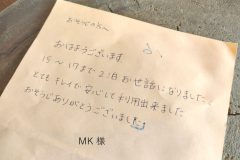 おそうじの方へ
おはようございます
15〜17まで2泊お世話になりました。
とてもキレイで安心して利用出来ました
おそうじありがとうございました
MK 様